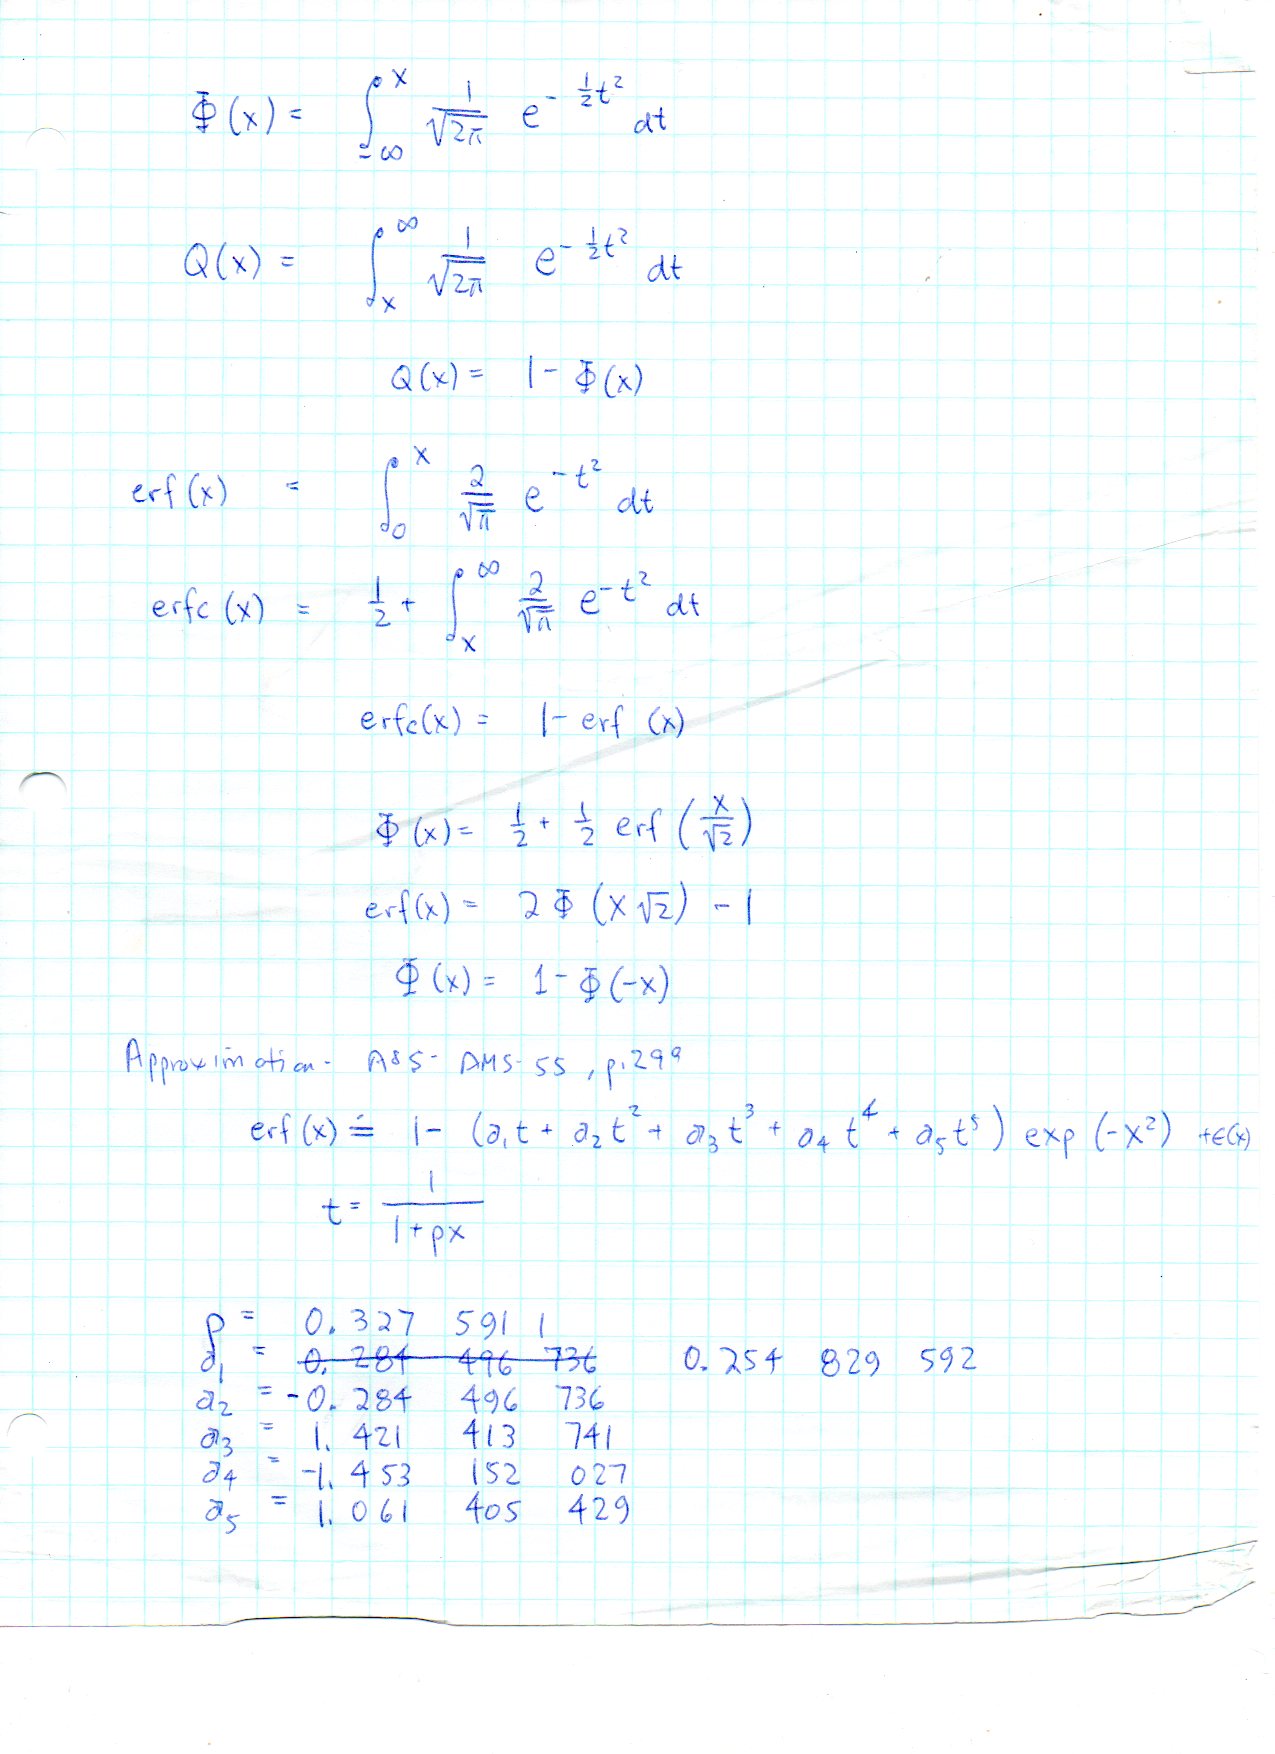 Φ(x) = ∫_{-∞}^{x} 1/√(2π) e^{-½t²} dt
Q(x) = ∫_{x}^{∞} 1/√(2π) e^{-½t²} dt
Q(x) = 1 - Φ(x)
erf(x) = ∫_{0}^{x} 2/√π e^{-t²} dt
erfc(x) = ½ + ∫_{x}^{∞} 2/√π e^{-t²} dt
erfc(x) = 1 - erf(x)
Φ(x) = ½ + ½ erf(x/√2)
erf(x) = 2Φ(x√2) - 1
Φ(x) = 1 - Φ(-x)
Approximation - A&S - AMS-55, p.299
erf(x) ≐ 1 - (a₁t + a₂t² + a₃t³ + a₄t⁴ + a₅t⁵) exp(-x²) + ϵ(x)
t = 1/(1+px)
p = 0.327 591 1
a₁ = 0.284 496 736 0.254 829 592
a₂ = -0.284 496 736
a₃ = 1.421 413 741
a₄ = -1.453 152 027
a₅ = 1.061 405 429